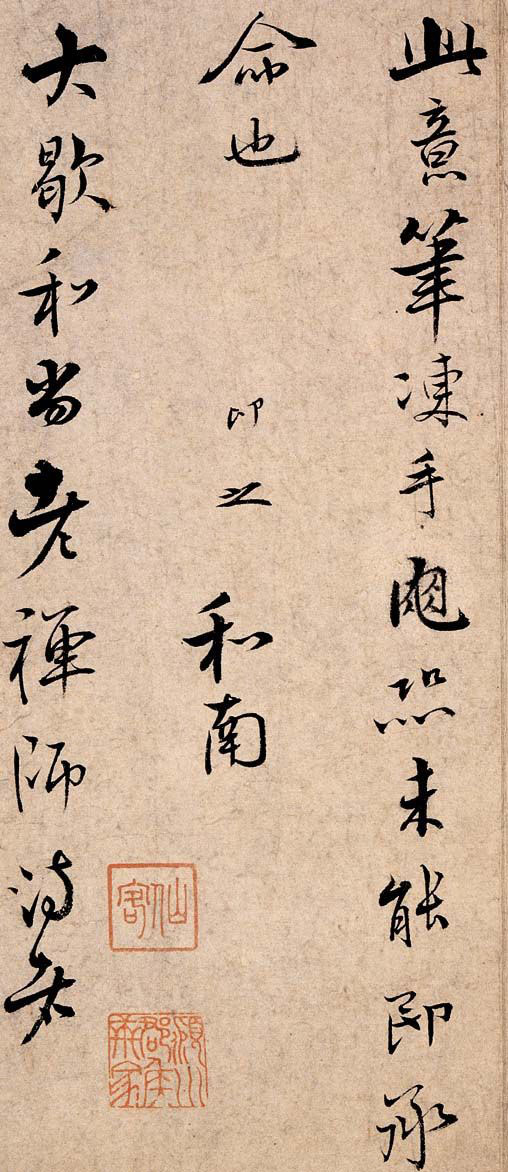 此意筆凍手龜恐未能即承
命也　即之和南
大歇和尚老禪師侍者
仙客